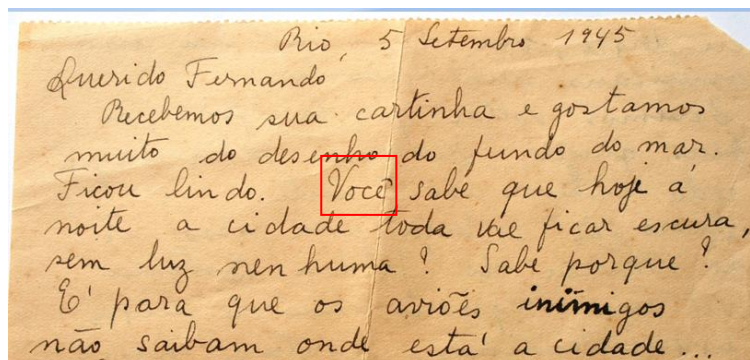 Rio, 5 Setembro 1945
Querido Fernando
Recebemos sua cartinha e gostamos
muito do desenho do fundo do mar.
Ficou lindo. Você sabe que hoje á
noite a cidade toda vae ficar escura,
sem luz nenhuma? Sabe porque?
E' para que os aviões inimigos
não saibam onde está a cidade...